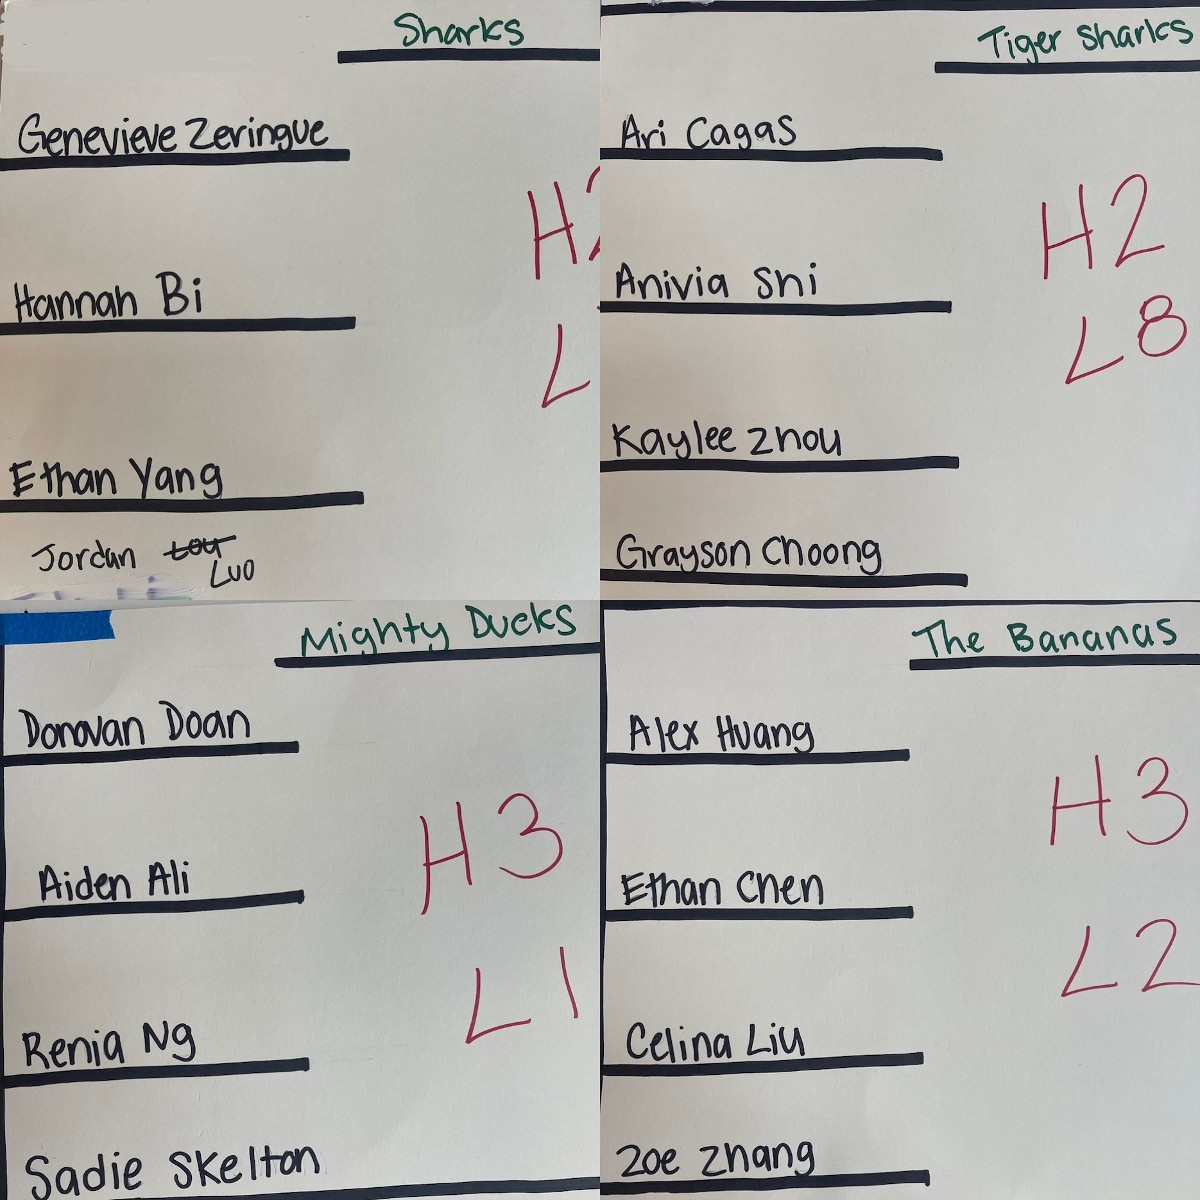 Sharks
Genevieve Zeringue
H2
Hannah Bi
L
Ethan Yang
Jordan Lou
Luo
Tiger Sharks
Ari Cagas
H2
Anivia Shi
L8
Kaylee Zhou
Grayson Choong
Mighty Ducks
Donovan Doan
H3
Aiden Ali
L1
Renia Ng
Sadie Skelton
The Bananas
Alex Huang
H3
Ethan Chen
L2
Celina Liu
Zoe Zhang